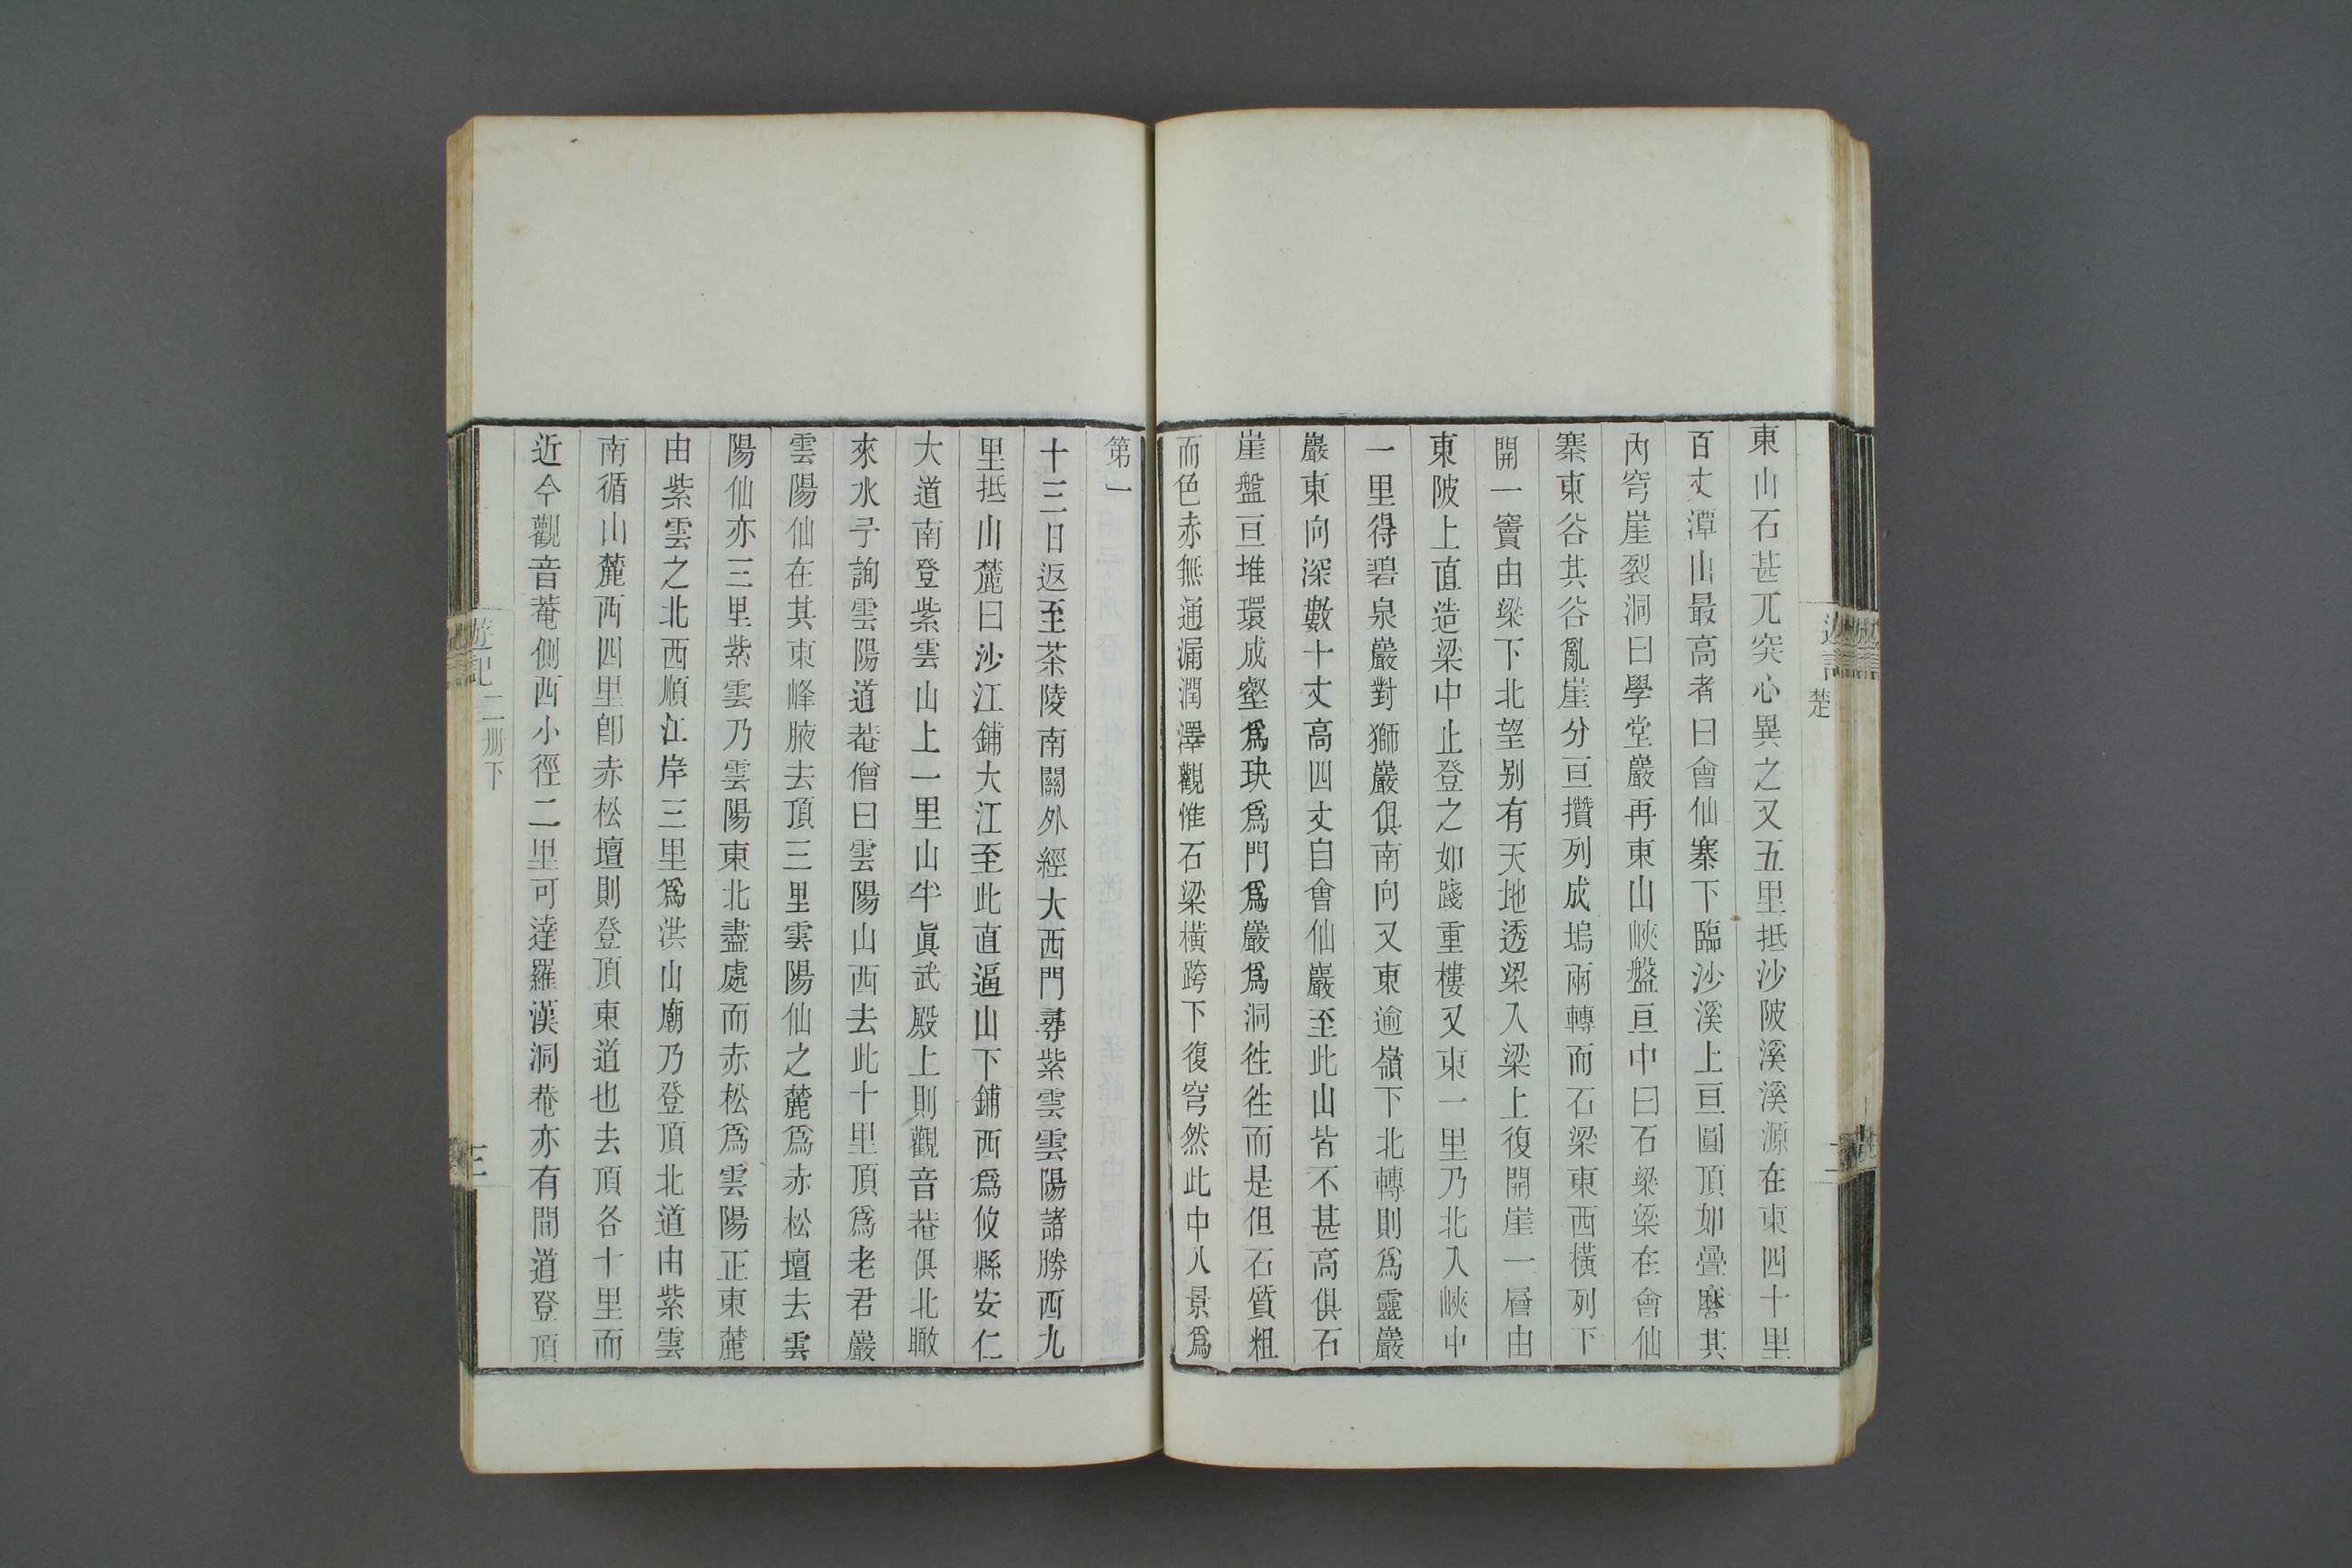 遊記
楚
二
東山石甚兀突心異之又五里抵沙陂溪溪源在東四十里
百丈潭山最高者曰會仙寨下臨沙溪上亘圓頂如疊磨其
內穹崖裂洞曰學堂巖再東山峽盤亘中曰石梁梁在會仙
寨東谷其谷亂崖分亘攢列成塢兩轉而石梁東西橫列下
開一竇由梁下北望别有天地透梁入梁上復開崖一層由
東陂上直造梁中止登之如踐重樓又東一里乃北入峽中
一里得碧泉巖對獅巖俱南向又東逾嶺下北轉則爲靈巖
巖東向深數十丈高四丈自會仙巖至此山皆不甚高俱石
崖盤亘堆環成壑爲玦爲門爲巖爲洞徃徃而是但石質粗
而色赤無通漏潤澤觀惟石梁橫跨下復穹然此中八景爲
第一
十三日返至茶陵南關外經大西門尋紫雲雲陽諸勝西九
里抵山麓曰沙江鋪大江至此直逼山下鋪西爲攸縣安仁
大道南登紫雲山上一里山半眞武殿上則觀音菴俱北瞰
來水予詢雲陽道菴僧曰雲陽山西去此十里頂爲老君巖
雲陽仙在其東峰腋去頂三里雲陽仙之麓爲赤松壇去雲
陽仙亦三里紫雲乃雲陽東北盡處而赤松爲雲陽正東麓
由紫雲之北西順江岸三里爲洪山廟乃登頂北道由紫雲
南循山麓西四里卽赤松壇則登頂東道也去頂各十里而
近今觀音菴側西小徑二里可達羅漢洞菴亦有間道登頂
遊記
二册下
三